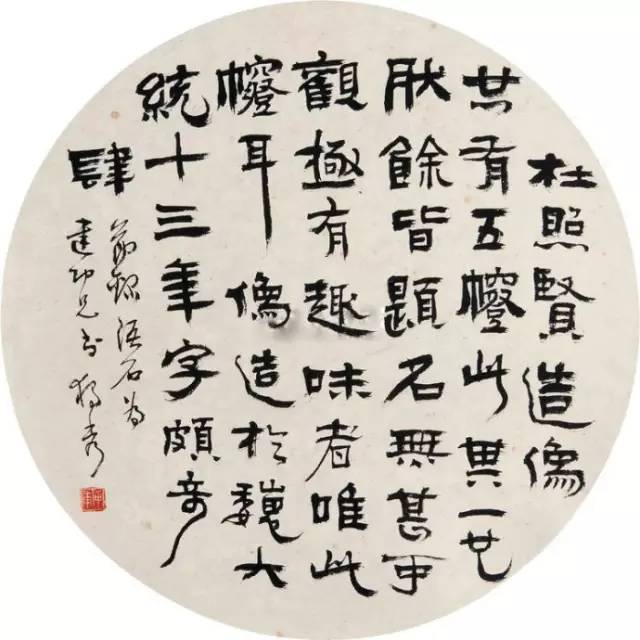 杜照賢造像
共有五幢此其一也
肰餘皆題名無甚可
觀極有趣味者唯此
幢耳像造於魏大
統十三年字頗奇
肆
節録語石為
建功兄書